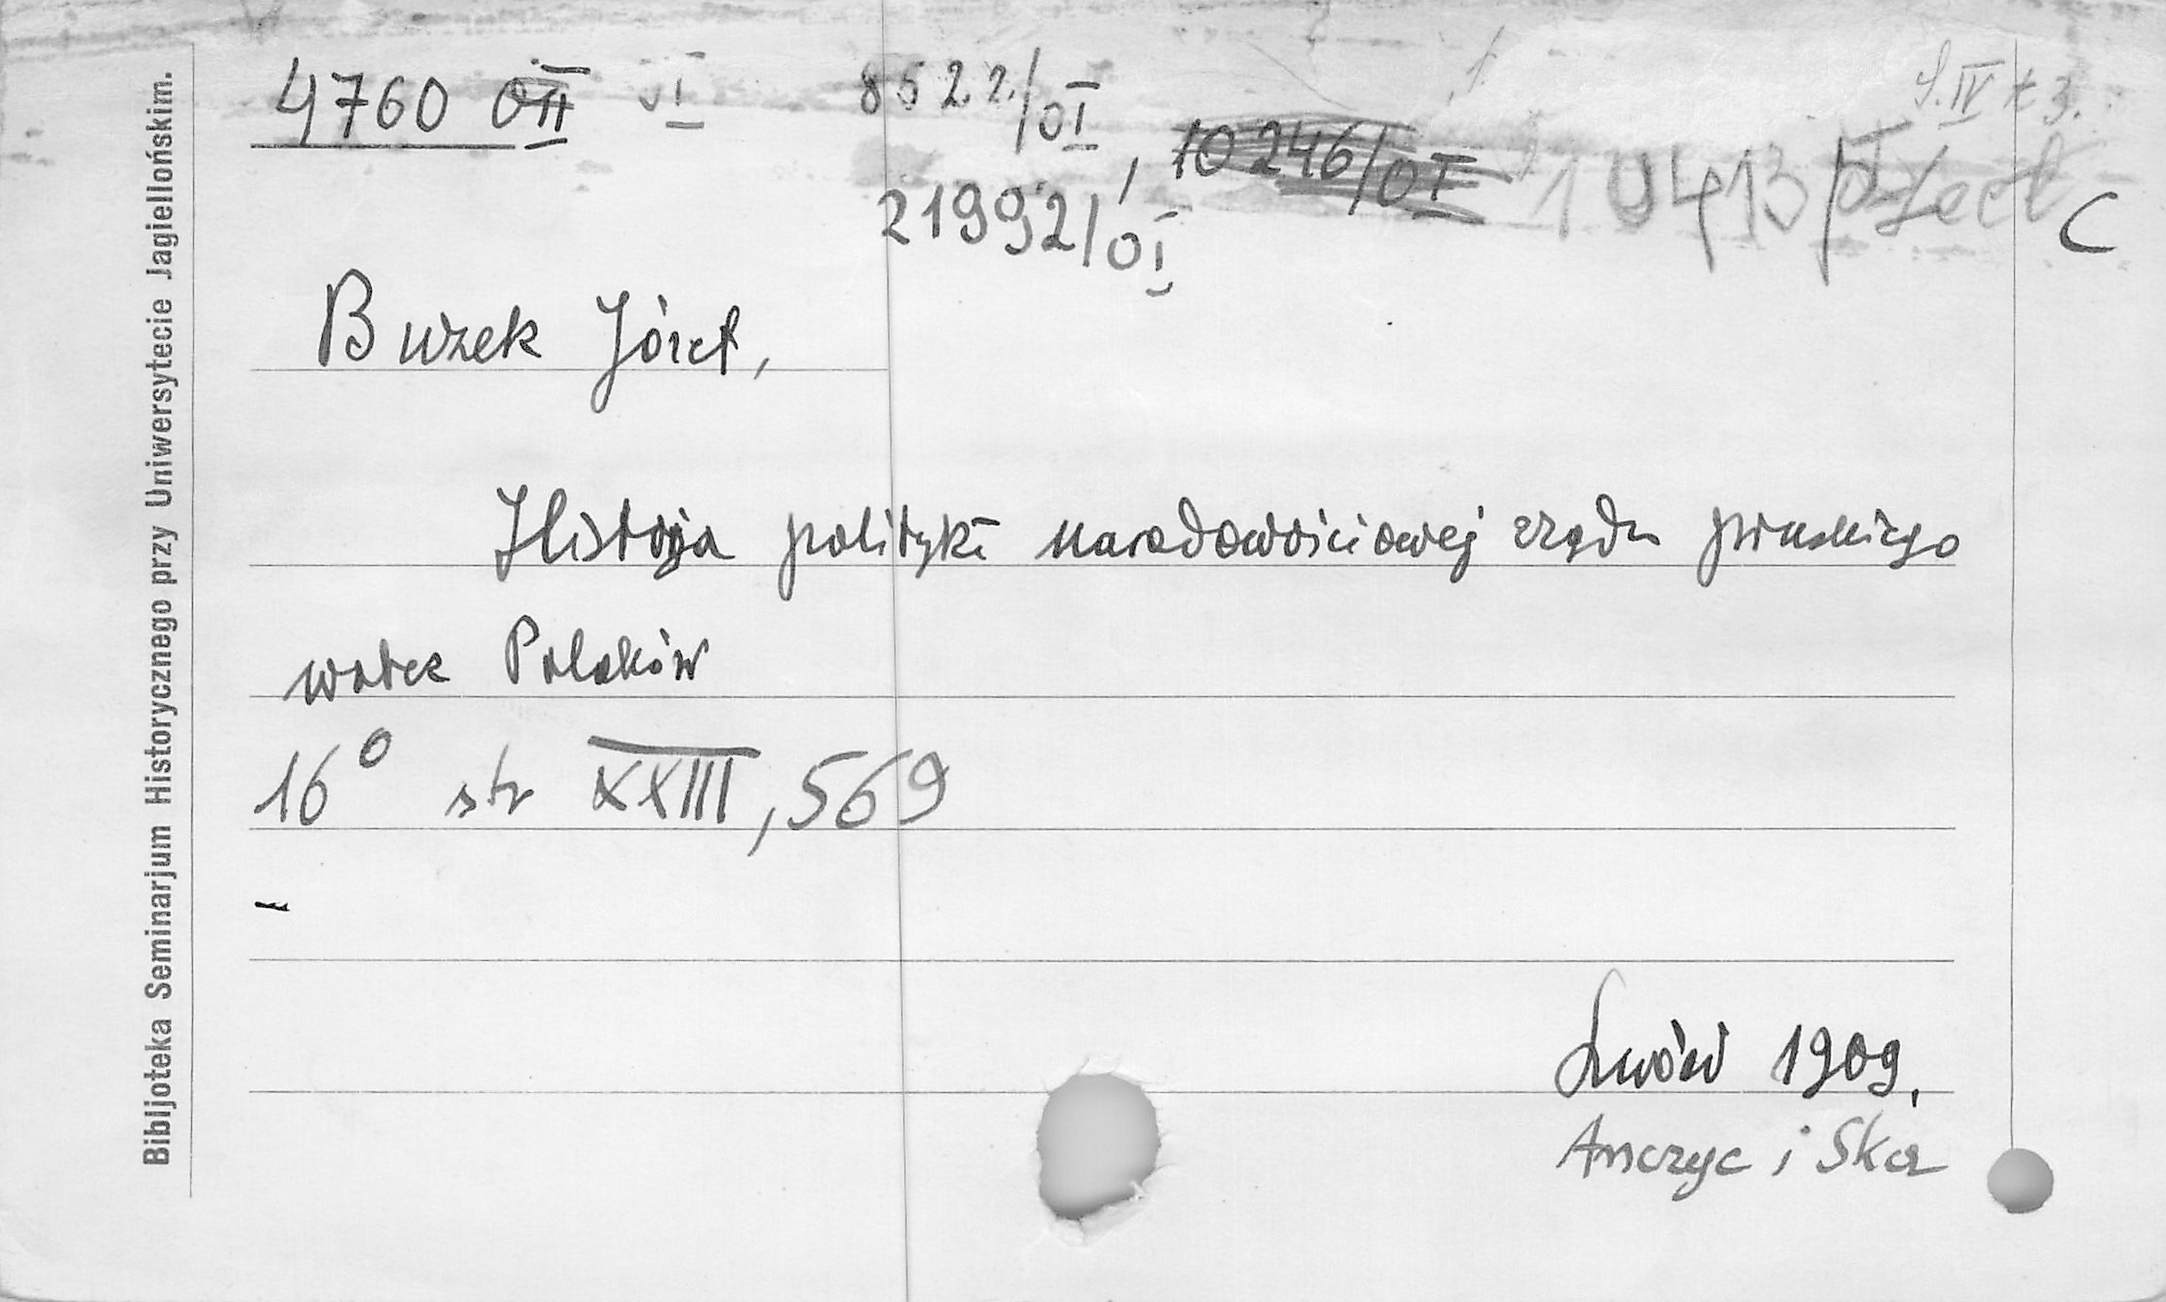 4760 OII
8522/OI
S.IV t 3.
10246/OI
10413/
21992/OI
C
Buzek Józef,
Historja polityki narodowościowej rządu pruskiego
wobec Polaków
16° str XXIII, 569
Lwów 1909.
Anczyc i Ska
Bibljoteka Seminarjum Historycznego przy Uniwersytecie Jagiellońskim.